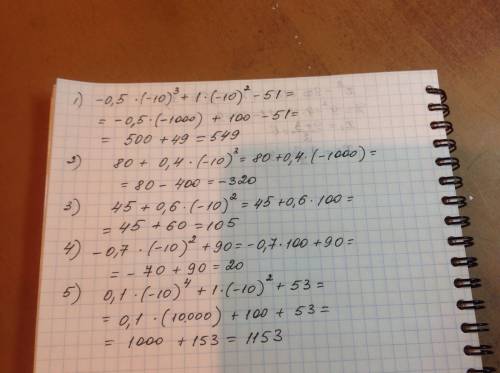 1) -0,5 · (-10)³ + 1 · (-10)² - 51 =
= -0,5 · (-1000) + 100 - 51 =
= 500 + 49 = 549
2) 80 + 0,4 · (-10)³ = 80 + 0,4 · (-1000) =
= 80 - 400 = -320
3) 45 + 0,6 · (-10)² = 45 + 0,6 · 100 =
= 45 + 60 = 105
4) -0,7 · (-10)² + 90 = -0,7 · 100 + 90 =
= -70 + 90 = 20
5) 0,1 · (-10)⁴ + 1 · (-10)² + 53 =
= 0,1 · (10.000) + 100 + 53 =
= 1000 + 153 = 1153